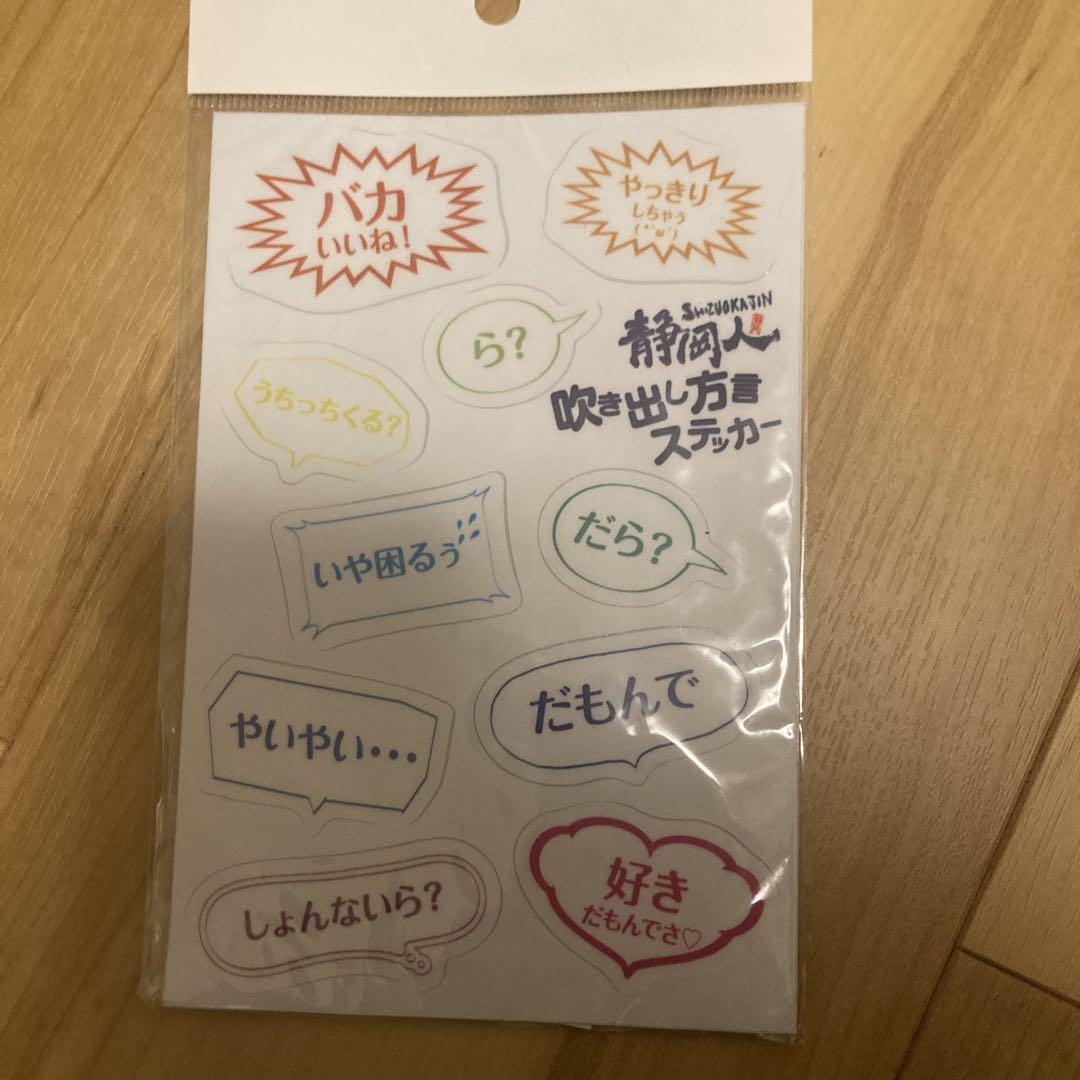 バカ
いいね!
やっきり
しちゃう
(*`ω´)
ら?
SHIZUOKAJIN
静岡人
吹き出し方言
ステッカー
うちっちくる?
いや困るぅ
だら?
やいやい・・・
だもんで
しょんないら?
好き
だもんでさ♡